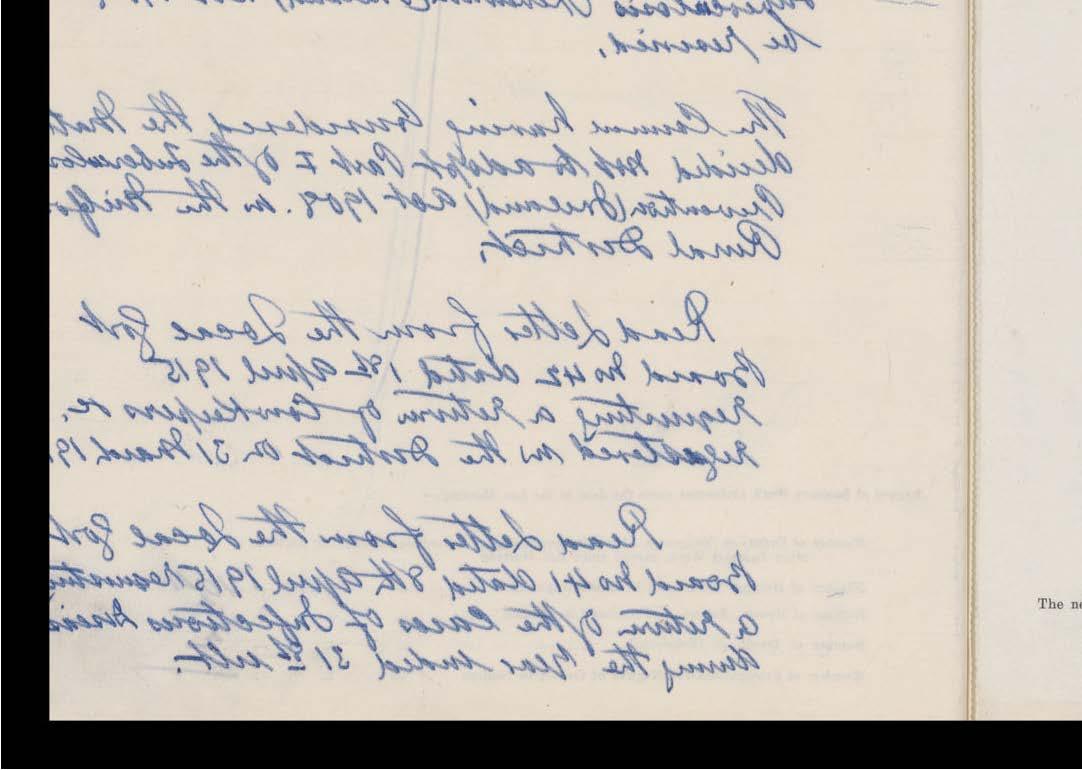 be received.
The Comm having Considered the Matt
decided not to adopt Part I of the Tuberculos
Prevention (Ireland) Act 1908. in the Milfo
Rural District.
Read Letter from the Local Govt
Board No 42 dated 1st April 1915
requesting a return of Cowkeepers &c.
registered in the District on 31 March 19
Read Letter from the Local Govt
Board No 41 dated 8th April 1915 Requesting
a return of the Cases of Infectious Diseas
during the Year ended 31st ult.
The ne